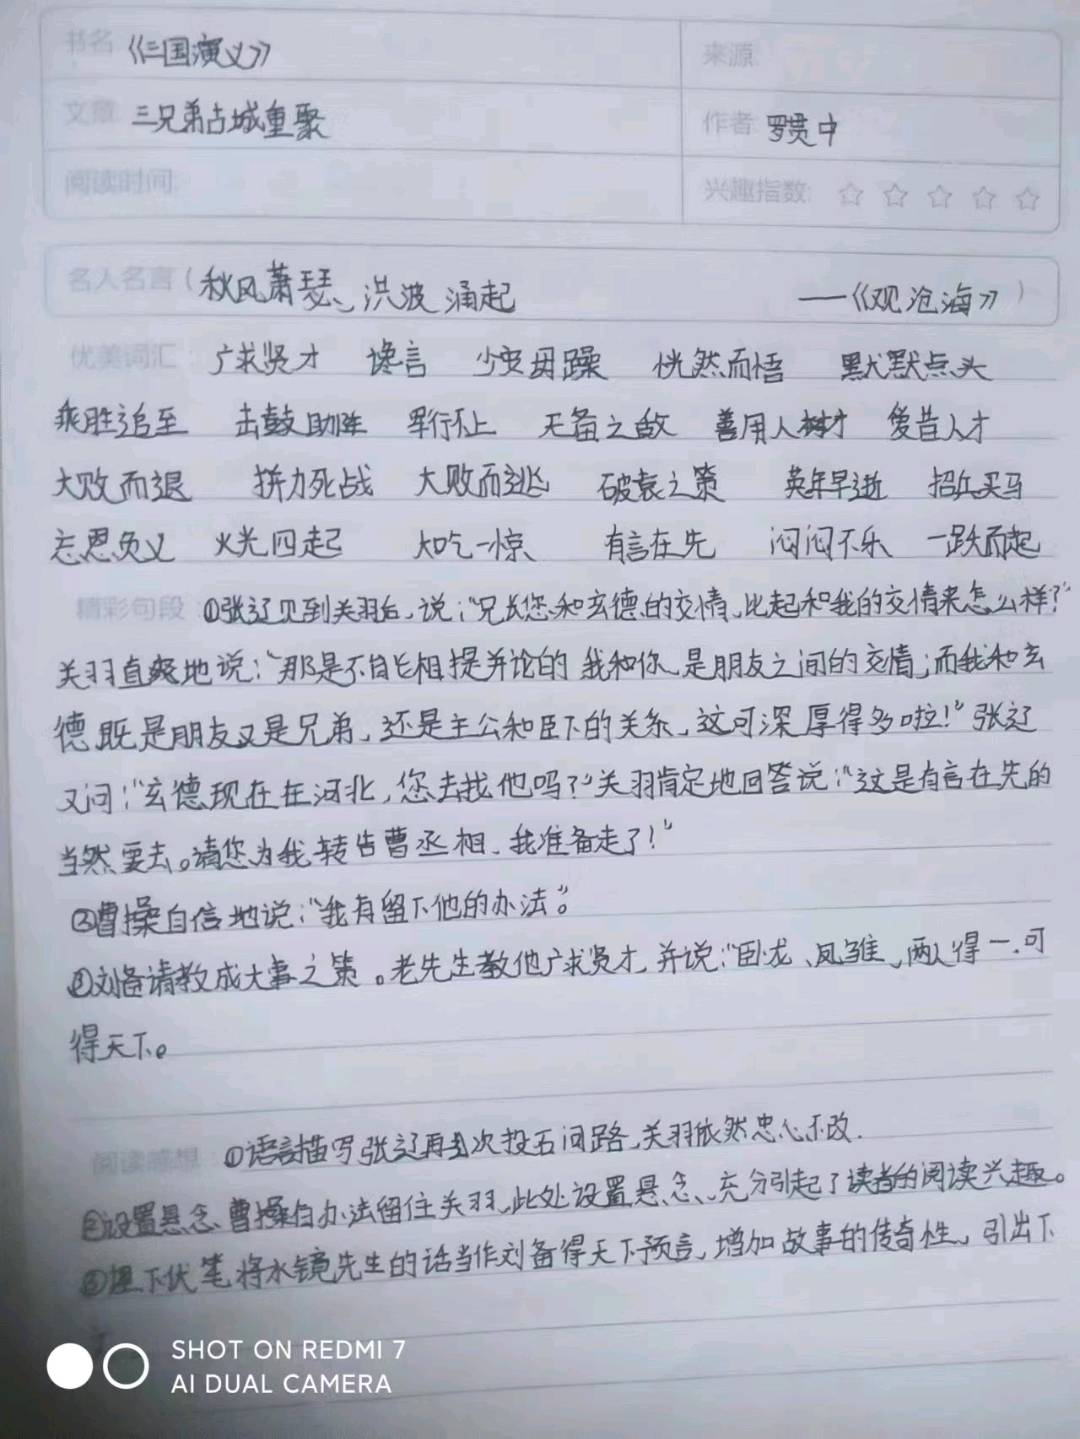 书名 《三国演义》 来源:
文章 三兄弟占城重聚 作者 罗贯中
阅读时间: 兴趣指数: ☆ ☆ ☆ ☆ ☆
名人名言(秋风萧瑟、洪波涌起 ——《观沧海》)
优美词汇: 广求贤才 谗言 少安毋躁 恍然而悟 默默点头
乘胜追至 击鼓助阵 军行不止 无备之敌 善用人才 爱惜人才
大败而退 拼力死战 大败而逃 破袁之策 英年早逝 招兵买马
忘恩负义 火光四起 大吃一惊 有言在先 闷闷不乐 一跃而起
精彩句段: ①张辽见到关羽后,说:“兄长您和玄德的交情,比起和我的交情来怎么样?”
关羽直爽地说:“那是不能相提并论的 我和你、是朋友之间的交情;而我和玄
德既是朋友又是兄弟,还是主公和臣下的关系,这可深厚得多啦!”张辽
又问:“玄德现在在河北,您去找他吗?”关羽肯定地回答说:“这是有言在先的
当然要去。请您为我转告曹丞相、我准备走了!”
②曹操自信地说:“我有留下他的办法”。
③刘备请教成大事之策。老先生教他广求贤才,并说:“卧龙、凤雏、两人得一.可
得天下。
阅读感想: ①语言描写张辽再次投石问路,关羽依然忠心不改.
②设置悬念 曹操有办法留住关羽,此处设置悬念、充分引起了读者的阅读兴趣。
③埋下伏笔 将水镜先生的话当作刘备得天下预言,增加故事的传奇性,引出下
SHOT ON REDMI 7
AI DUAL CAMERA